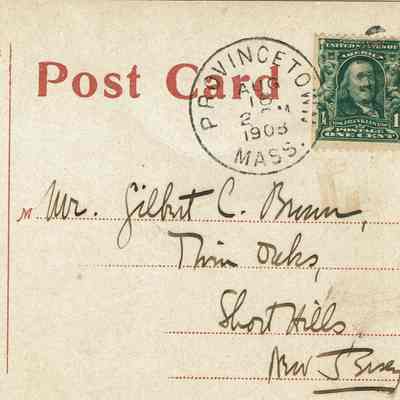 Post Card
PROVINCETOWN
AUG
2 PM
1908
MASS.
UNITED STATES OF AMERICA
FRANKLIN
1 POSTAGE 1
ONE CENT
Mr. Gilbert C. Brown,
Twin Oaks,
Short Hills
New Jersey